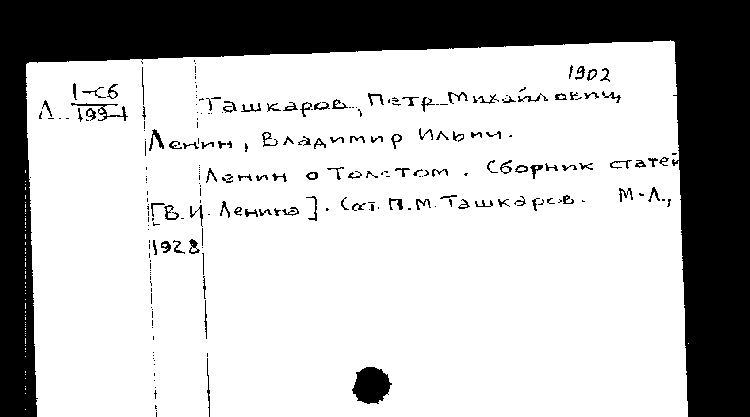 1902
Л. 1-сб
199-1
Ташкаров, Петр Михайлович,
Ленин, Владимир Ильич.
Ленин о Толстом. Сборник статей
[В.И. Ленина]. П.М. Ташкаров. М-Л.,
1928